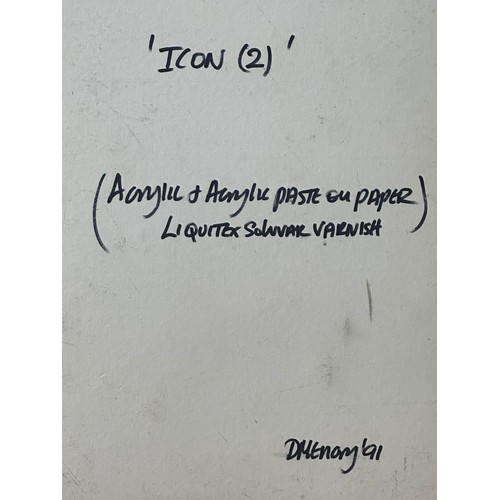 'ICON (2)'
(ACRYLIC & ACRYLIC PASTE ON PAPER)
LIQUITEX SOLUVAR VARNISH
DMEnary '91